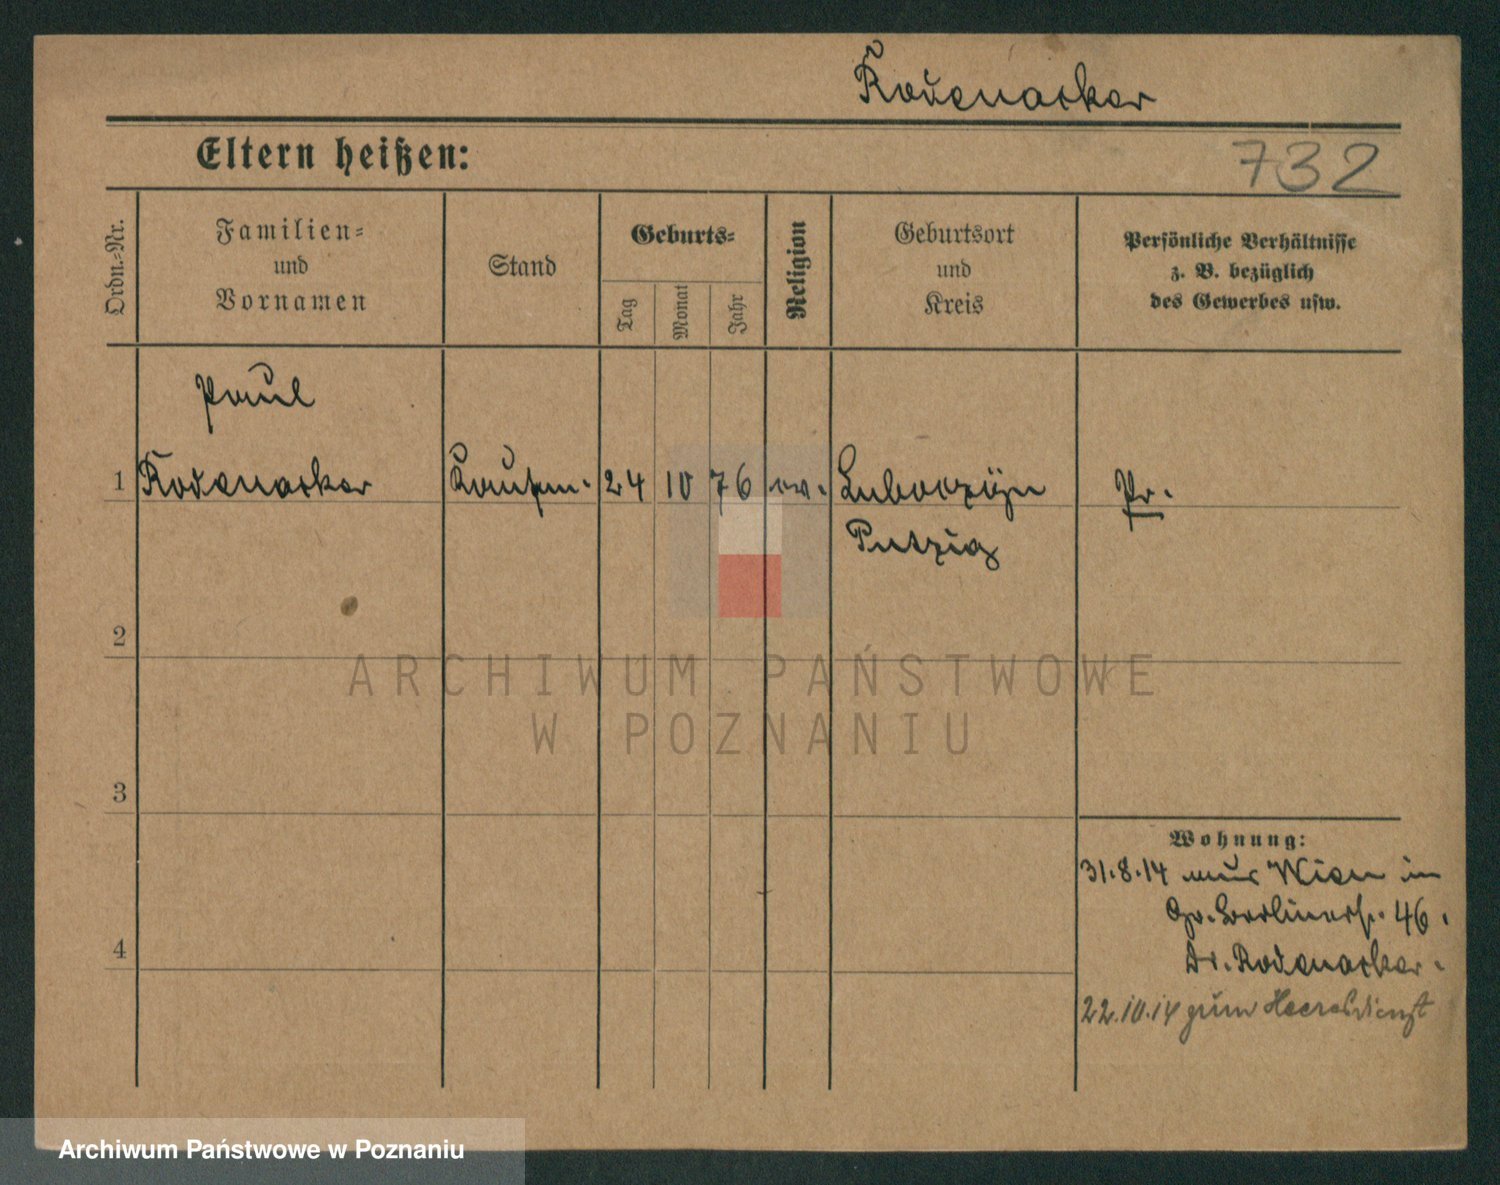 Rodenacker
Eltern heißen:
732
Ordn.-Nr.
Familien-
und
Vornamen
Stand
Geburts-
Tag
Monat
Jahr
Religion
Geburtsort
und
Kreis
Persönliche Verhältnisse
z. B. bezüglich
des Gewerbes usw.
Paul
1 Rodenacker Kaufm. 24 10 76 ev. Pr.
Putzig
2
3
4
Wohnung:
31.8.14 aus Wien in
Gr. Berlinerstr. 46.
Dr. Rodenacker.
22.10.14 zum Heeresdienst
ARCHIWUM PAŃSTWOWE
W POZNANIU
Archiwum Państwowe w Poznaniu